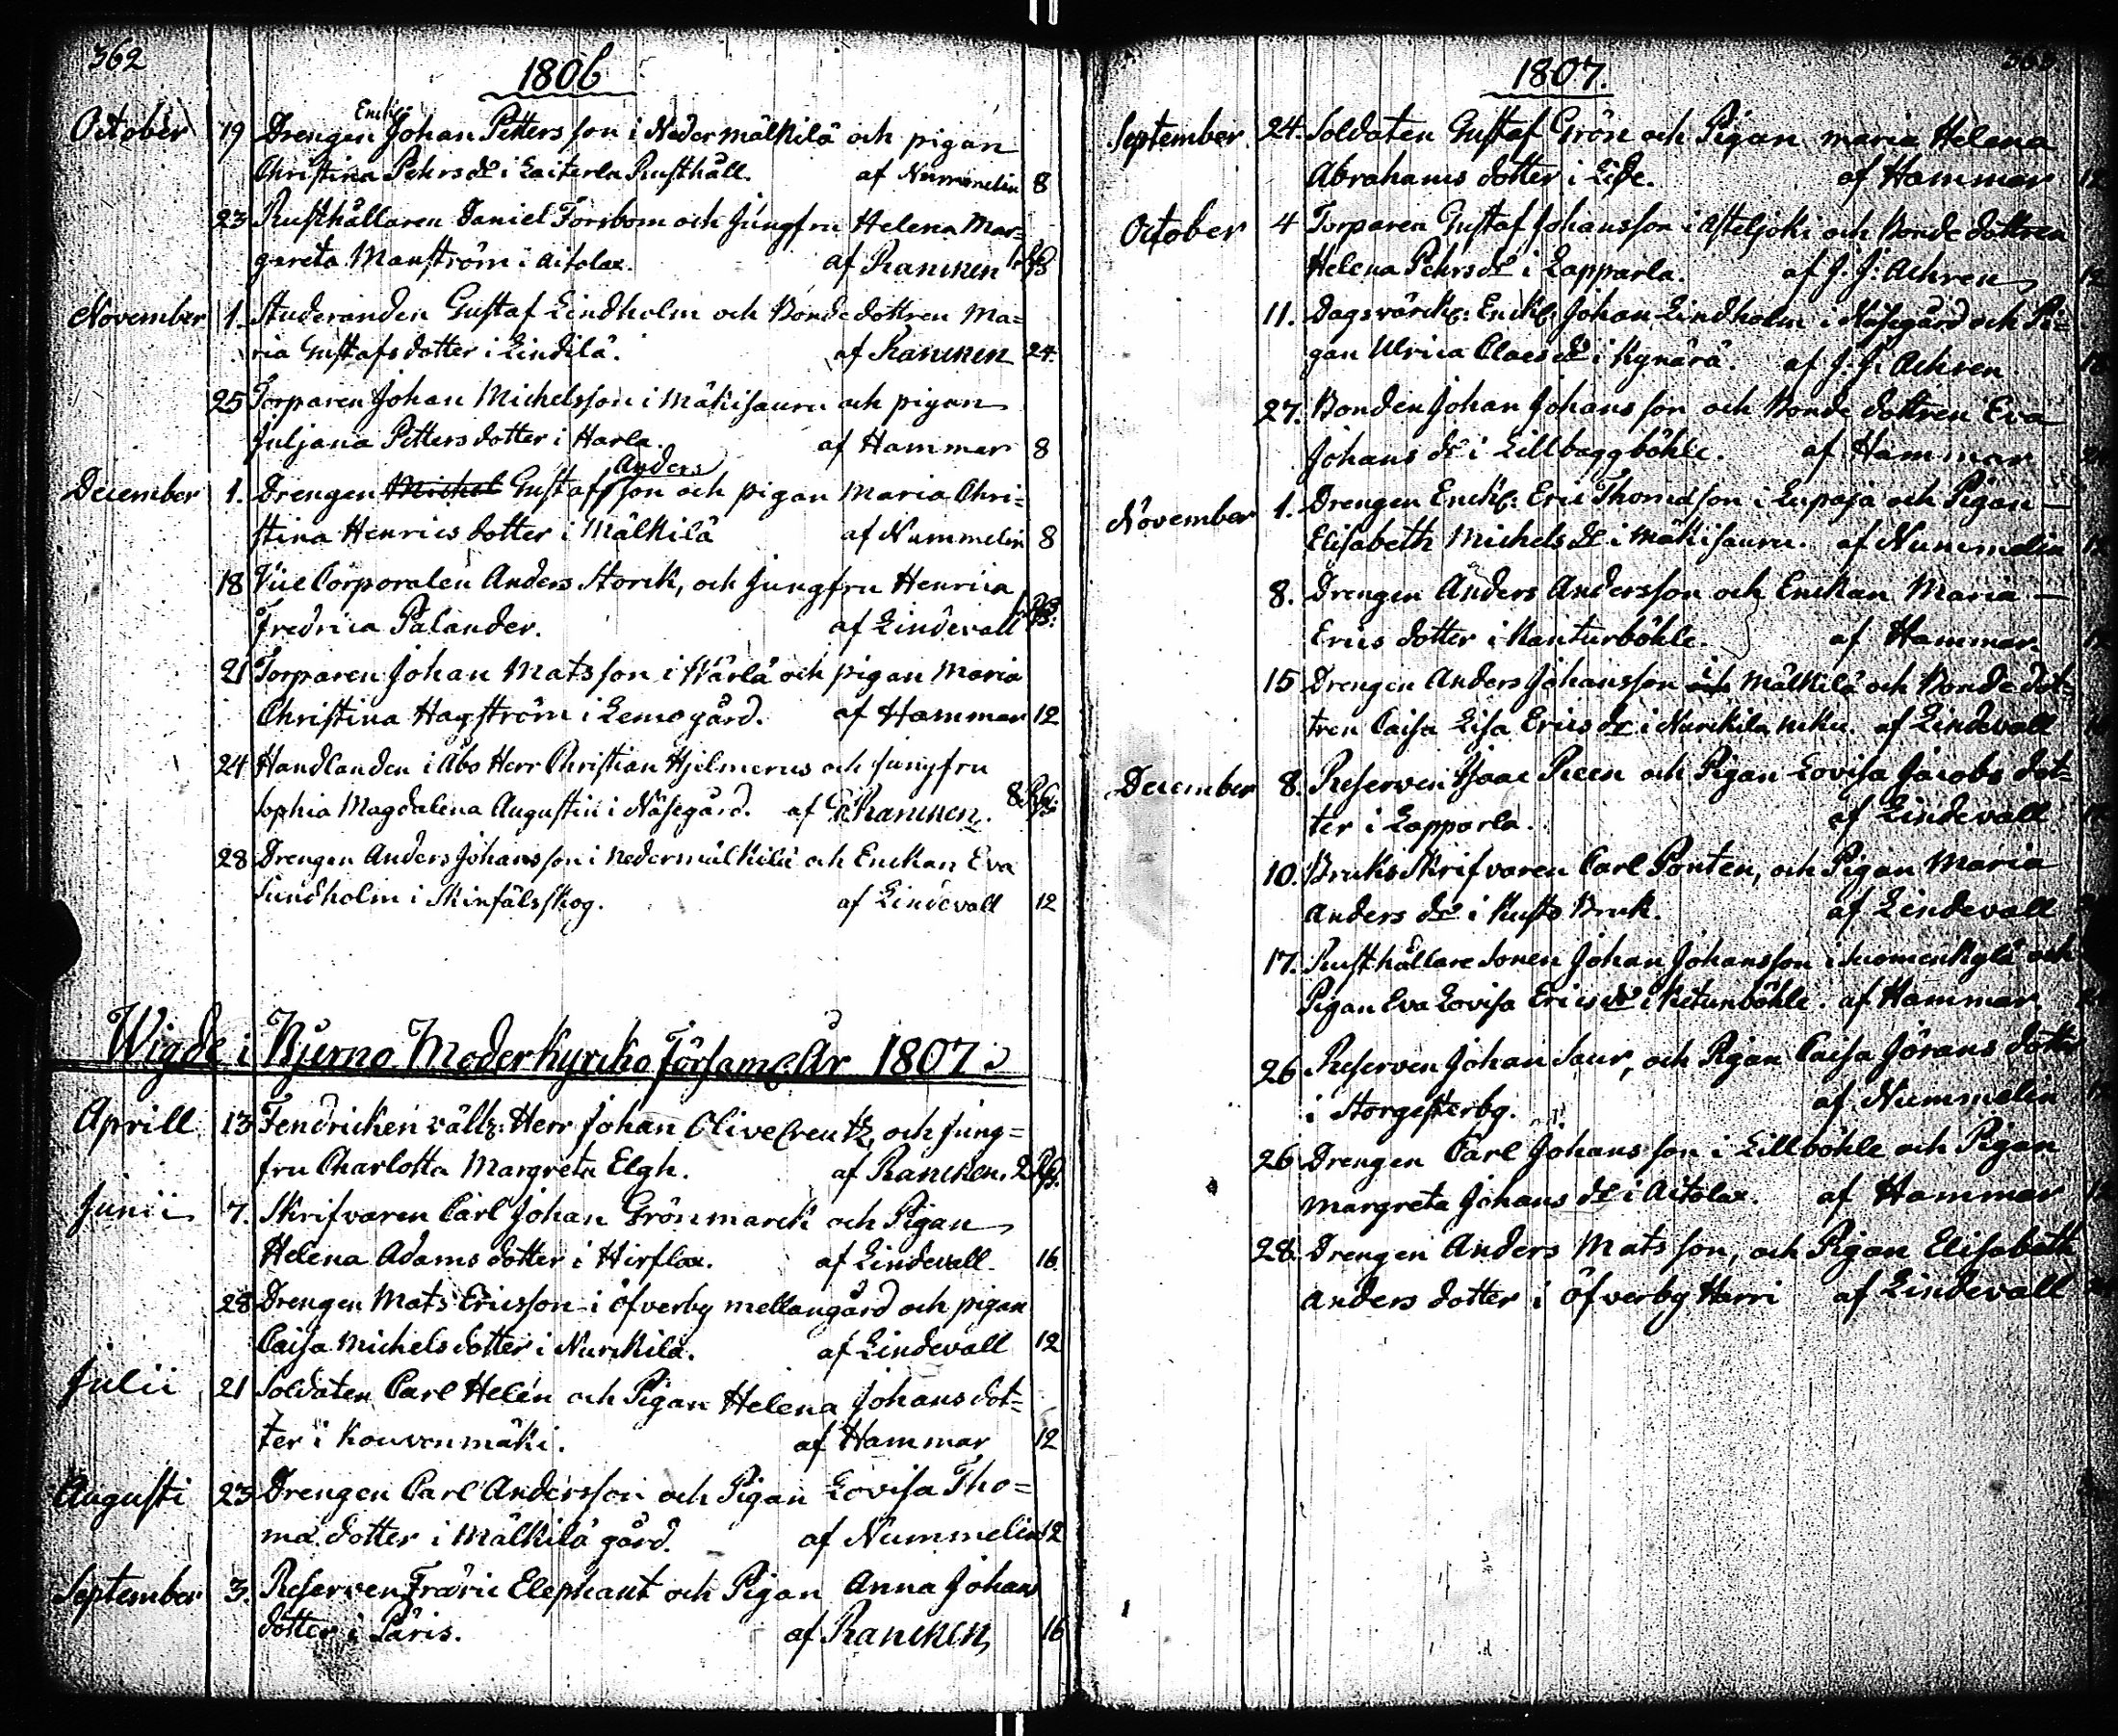 362
1806
October 19 Drengen Enckl. Johan Petters son i Nedermälkilä och pigan
Christina Pehrs dr i Laiterla Rusthåll. af Nummelin 8
23 Rusthållaren Daniel Forsbom och Jungfru Helena Mar=
gareta Manström i Aitolax. af Rancken
November 1. Studeranden Gustaf Lindholm och Bondedottren Ma=
ria Gustafsdotter i Lindilä. af Rancken 24.
25 Torparen Johan Michelsson i Mäkisauru och pigan
Juljana Pettersdotter i Harla. af Hammar 8
Anders
December 1. Drengen Michel Gustafsson och pigan Maria Chri=
stina Henrics dotter i Mälkilä af Nummelin 8
18 Vice Corporalen Anders Storck, och Jungfru Henrica
Fredrica Palander. af Lindevall
21 Torparen Johan Matsson i Wärlä och pigan Maria
Christina Hagström i Lemogård. af Hammar 12
24 Handlanden i Åbo Herr Christian Hjelmerus och Jungfru
Sophia Magdalena Augustin i Näsegård. af Rancken.
28 Drengen Anders Johansson i Nedermälkilä och Enckan Eva
Sundholm i Skinfälsskog. af Lindevall 12
Wigde i Bjerno Moderkyrcko Församl. År 1807.
Aprill 13 Fendricken välb: Herr Johan OliveCreutz, och Jung=
fru Charlotta Margreta Elgh. af Rancken. 2
Junii 7. Skrifvaren Carl Johan Grönmarck och Pigan
Helena Adamsdotter i Hirflax. af Lindevall. 16
28 Drengen Mats Ericsson i Öfverby mellangård och pigan
Caisa Michelsdotter i Nurckila. af Lindevall 12
Julii 21 Soldaten Carl Helén och Pigan Helena Johansdot=
ter i Kouvenmäki. af Hammar 12
Augusti 23 Drengen Carl Andersson och Pigan Lovisa Tho=
mæ dotter i Mälkilä gård. af Nummelin 12
September 3. Reserven Fredric Elephant och Pigan Anna Johans
dotter i Päris. af Rancken 16
363
1807.
September 24. Soldaten Gustaf Grön och Pigan Maria Helena
Abrahams dotter i Lide. af Hammar 12
October 4 Torparen Gustaf Johansson i Asteljoki och Bonde dottren
Helena Pehrs dr i Lapparla. af J. J: Achren 12
11. Dagsvärckk: Enckl: Johan Lindholm i Näsegård och Pi=
gan Ulrica Claes dr i Kynärä. af J. J. Achren
27. Bonden Johan Johansson och Bonde dottren Eva
Johans dr i Lillbaggböhle. af Hammar
November 1. Drengen Enckl: Eric Thomasson i Lupaja och Pigan
Elisabeth Michels dr i Mäkisauru. af Nummelin
8. Drengen Anders Andersson och Enckan Maria
Erics dotter i Kanturböhle. af Hammar.
15 Drengen Anders Johansson i Mälkilä och Bondedot=
tren Caisa Lisa Erics dr i Nurckila af Lindevall
December 8. Reserven Isaac Reen och Pigan Lovisa Jacobs dot=
ter i Lapparla. af Lindevall
10. Bruks Skrifvaren Carl Ponten, och Pigan Maria
Anders dr i Kusto Bruk. af Lindevall
17. Rusthållare Sonen Johan Johansson i Suomenkylä och
Pigan Eva Lovisa Erics dr i Ketunböhle. af Hammar
26 Reserven Johan Saur, och Pigan Caisa Jörans dotter
i Storgesterby. af Nummelin
26 Drengen Carl Johansson i Lillböhle och Pigan
Margreta Johans dr i Aitolax. af Hammar
28. Drengen Anders Matsson, och Pigan Elisabeth
Anders dotter i Öfverby Harri af Lindevall